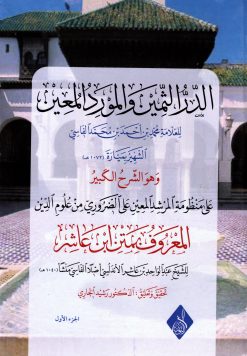 الدر الثمين والمورد المعين
للعلامة محمد بن أحمد بن محمد الفاسي
الشهير بميارة (١٠٧٢ هـ)
وهو الشرح الكبير
على منظومة المرشد المعين على الضروري من علوم الدين
المعروف بمتن ابن عاشر
للشيخ عبد الواحد بن عاشر الأندلسي أصلا الفاسي منشأ (١٠٤٠ هـ)
تحقيق وتعليق: الدكتور رشيد
الجزء الأول